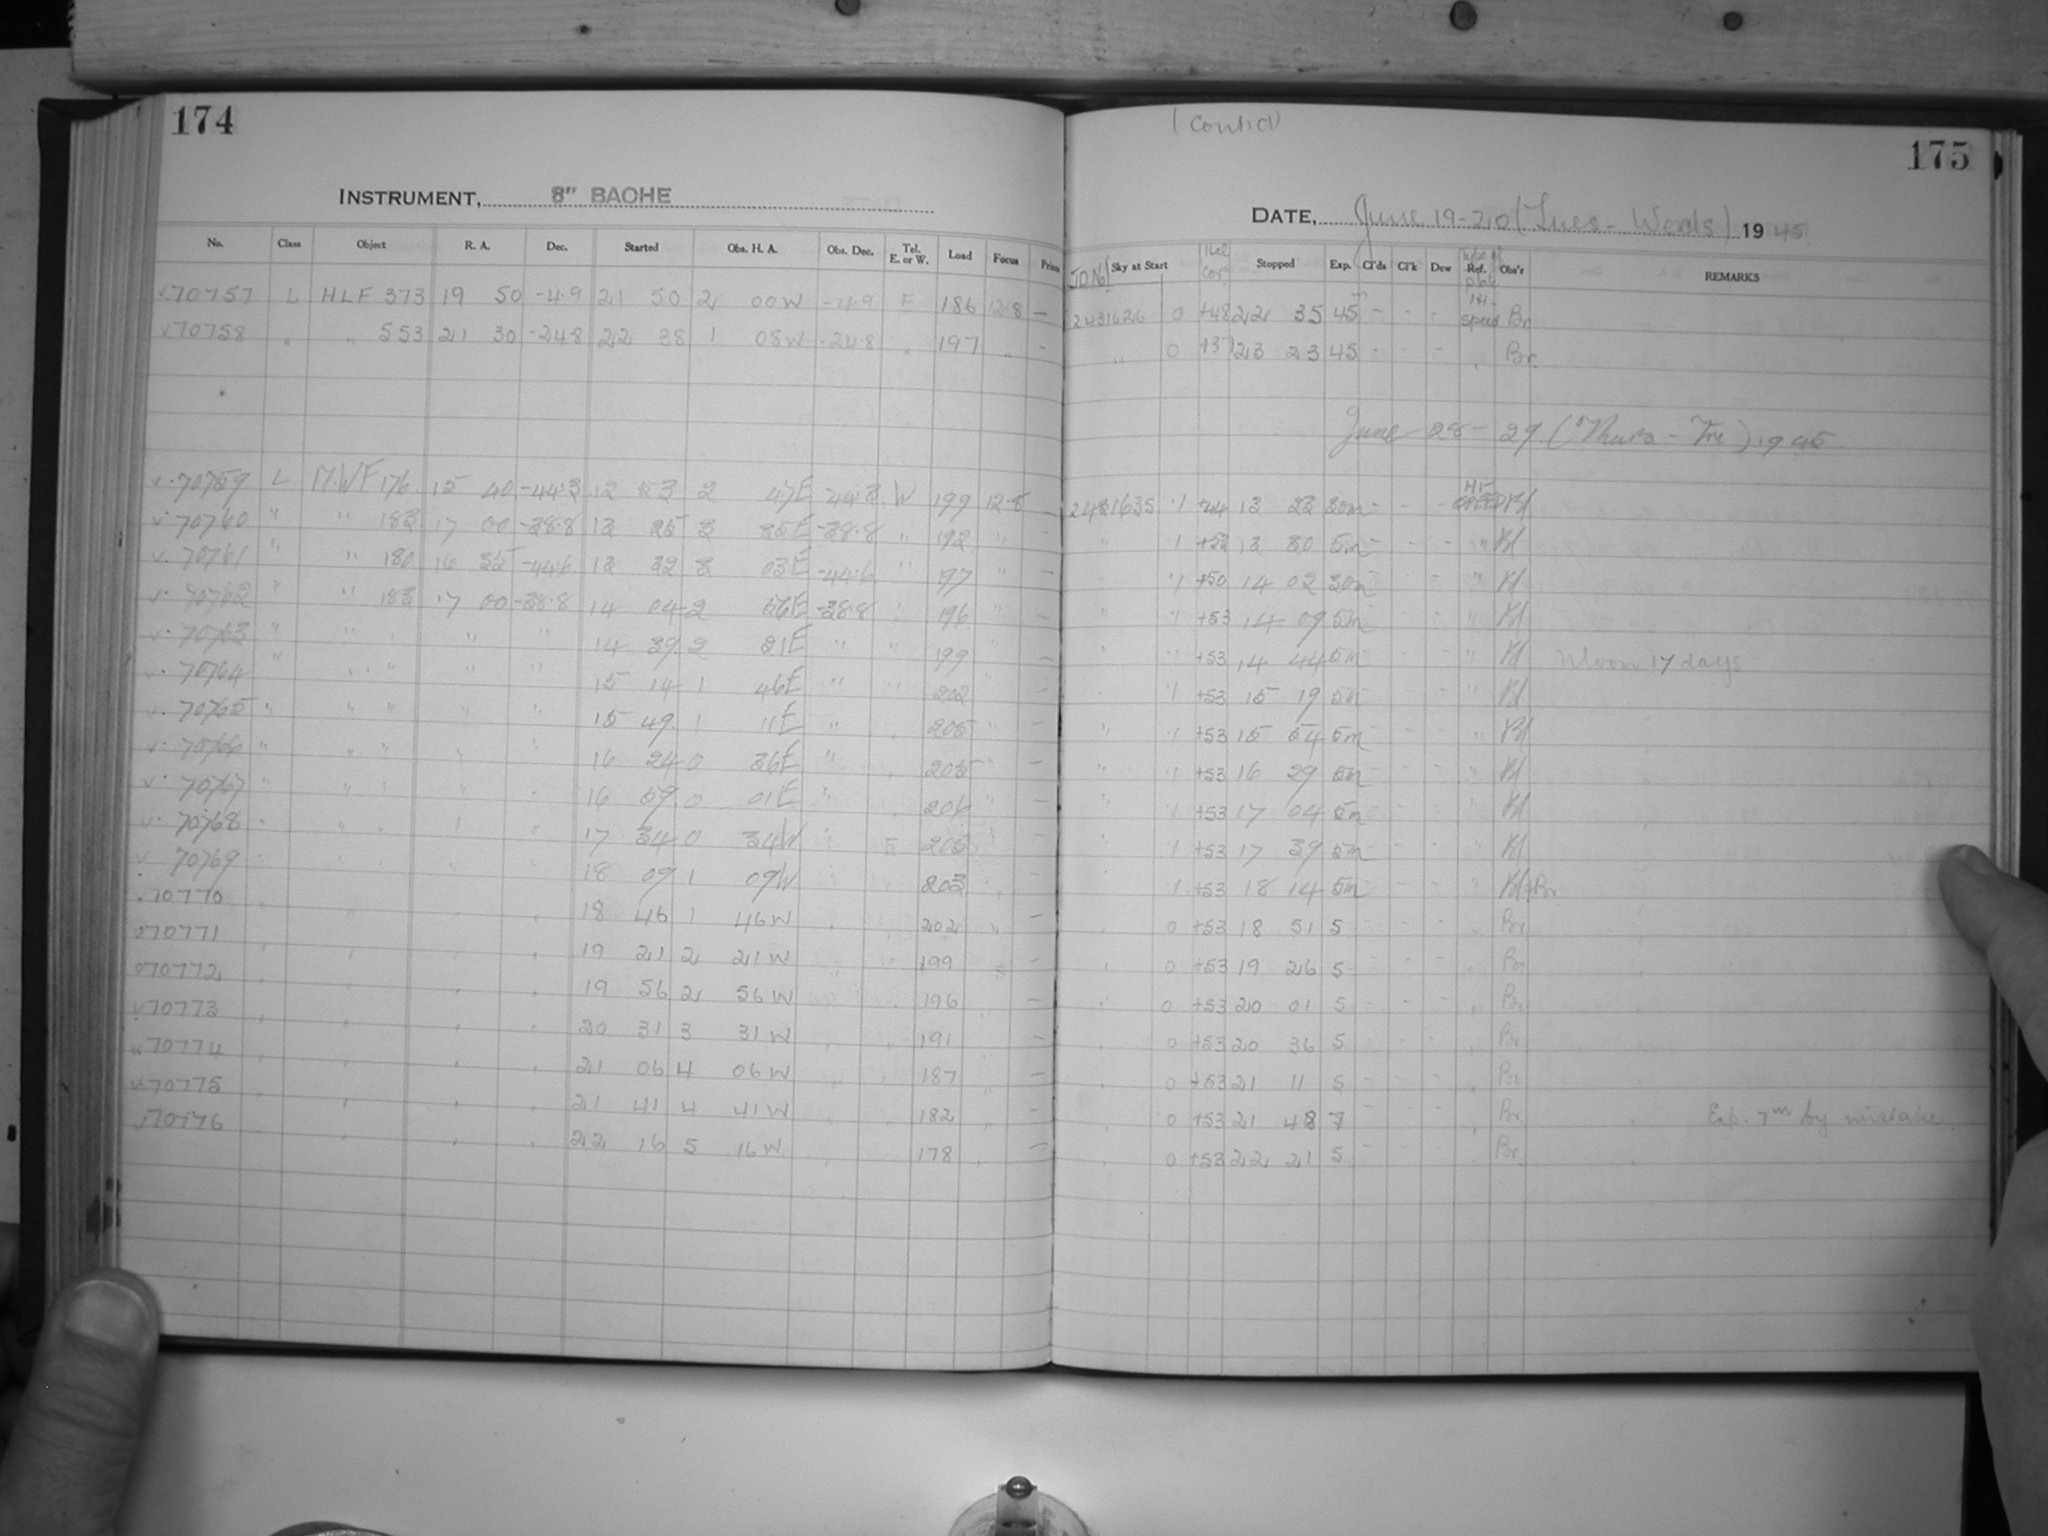 174
INSTRUMENT, 8" BACHE
No. Class Object R. A. Dec. Started Obs. H. A. Obs. Dec. Tel. E. or W. Load Focus Prism
70757 L HLF 373 19 50 -4.9 21 50 2 00W -4.9 E 186 12.8 —
70758 " " 553 21 30 -24.8 22 38 1 08W -24.8 " 197 " —
70759 L MWF 176 15 40 -44.3 12 53 2 47E -44.3 W 199 12.8 —
70760 " " 183 17 00 -38.8 13 25 3 35E -38.8 " 192 " —
70761 " " 180 16 35 -44.6 13 32 3 03E -44.6 " 197 " —
70762 " " 183 17 00 -38.8 14 04 2 56E -38.8 " 196 " —
70763 " " " " " 14 39 2 21E " " 199 " —
70764 " " " " " 15 14 1 46E " " 202 " —
70765 " " " " " 15 49 1 11E " " 205 " —
70766 " " " " " 16 24 0 36E " " 205 " —
70767 " " " " " 16 59 0 01E " " 206 " —
70768 " " " " " 17 34 0 34W " E 205 " —
70769 " " " " " 18 09 1 09W " " 203 " —
70770 " " " " 18 46 1 46W " " 202 " —
70771 " " " " 19 21 2 21W " " 199 " —
70772 " " " " 19 56 2 56W " " 196 —
70773 " " " " 20 31 3 31W " " 191 —
70774 " " " " 21 06 4 06W " " 187 " —
70775 " " " " 21 41 4 41W " " 182 " —
70776 " " " " 22 16 5 16W " " 178 " —
(Cont'd)
175
DATE, June 19-20 (Tues - Weds) 1945
J.D. No. Sky at Start Stopped Exp. Cl'ds Cl'k Dew Ref. Obs'r REMARKS
2431626 0 +48 22 35 45m - - - Hi-speed Br.
" 0 +37 23 23 45 - - - " Br.
June 28 - 29 (Thurs - Fri) 1945
2431635 .1 +44 13 23 30m - - - Hi- speed Bl
" .1 +52 13 30 5m - - - " Bl
" .1 +50 14 02 30m - - - " Bl
" .1 +53 14 09 5m - - - " Bl
" .1 +53 14 44 5m - - - " Bl Moon 17 days
" .1 +53 15 19 5m - - - " Bl
" .1 +53 15 54 5m - - - " Bl
" .1 +53 16 29 5m - - - " Bl
" .1 +53 17 04 5m - - - " Bl
" .1 +53 17 39 5m - - - " Bl
" .1 +53 18 14 5m - - - " Bl+Br.
" 0 +53 18 51 5 - - - " Br.
" 0 +53 19 26 5 - - - " Br.
" 0 +53 20 01 5 - - - " Br.
" 0 +53 20 36 5 - - - " Br.
" 0 +53 21 11 5 - - - " Br.
" 0 +53 21 48 7 - - - " Br. Exp. 7m by mistake.
" 0 +53 22 21 5 - - - " Br.